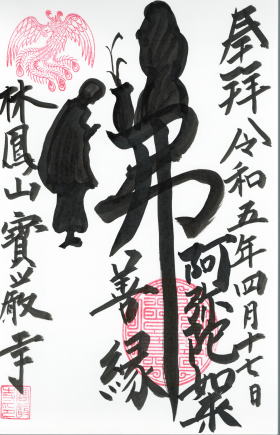 奉拝
令和五年四月十七日
阿弥陀架
佛
善縁
林鳳山寶巌寺